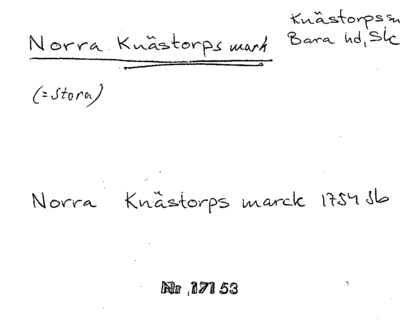 Norra Knästorps mark
Knästorps sn
Bara hd, Sk
(=Stora)
Norra Knästorps marck 1754 Jb
Nr 17153